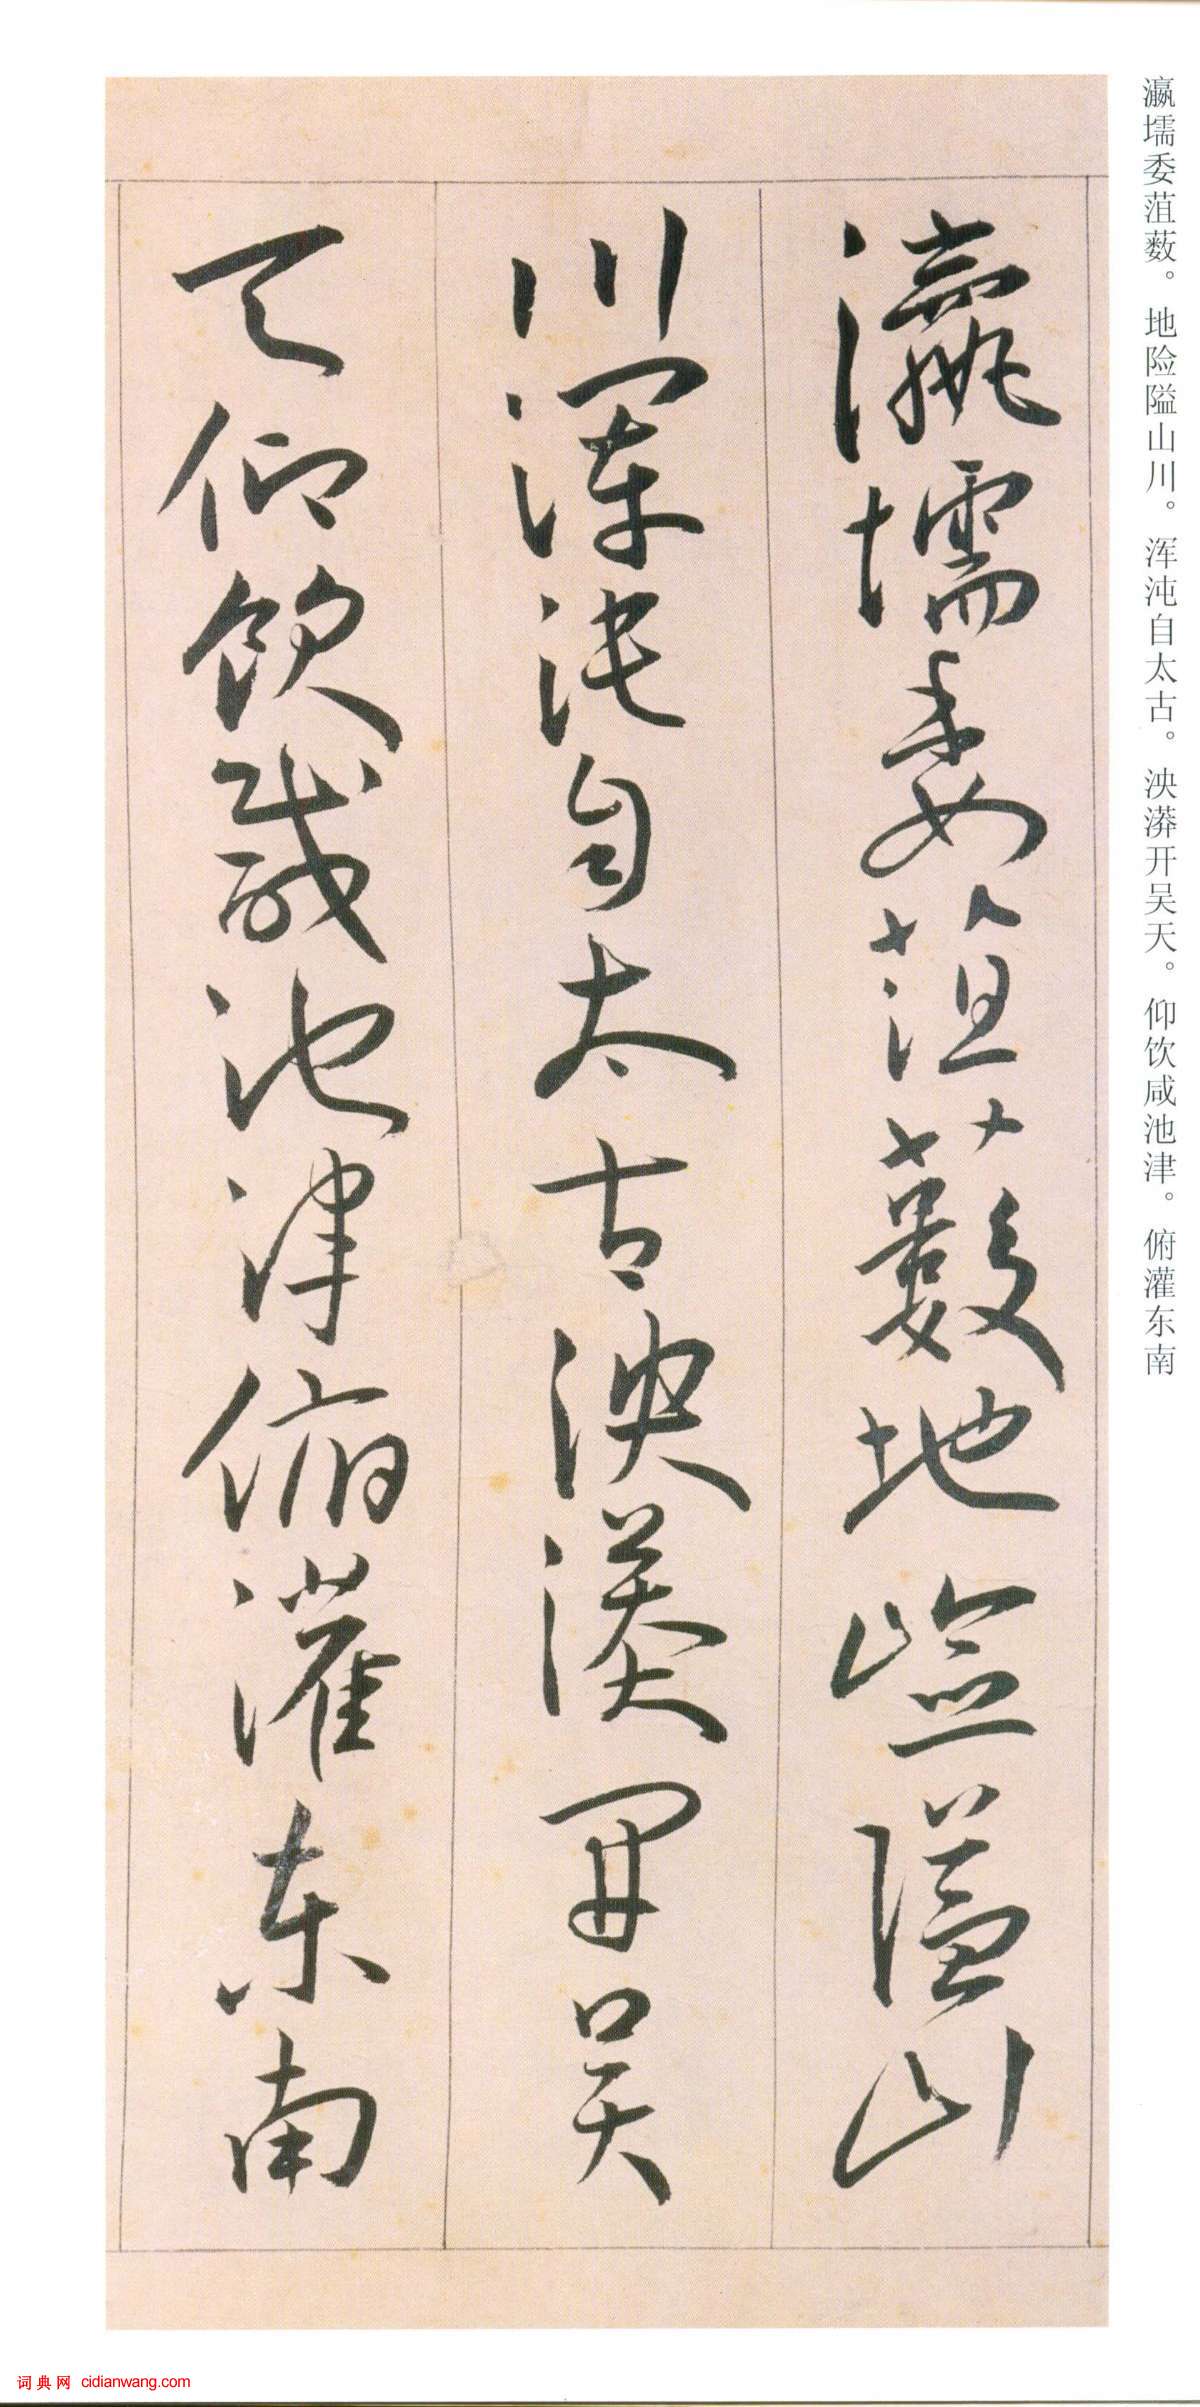 瀛壖委菹薮。地险隘山川。浑沌自太古。泱漭开吴天。仰饮咸池津。俯灌东南
瀛壖委菹薮地崄隘山
川浑沌自太古泱漭开吴
天仰饮咸池津俯灌东南
词典网 cidianwang.com